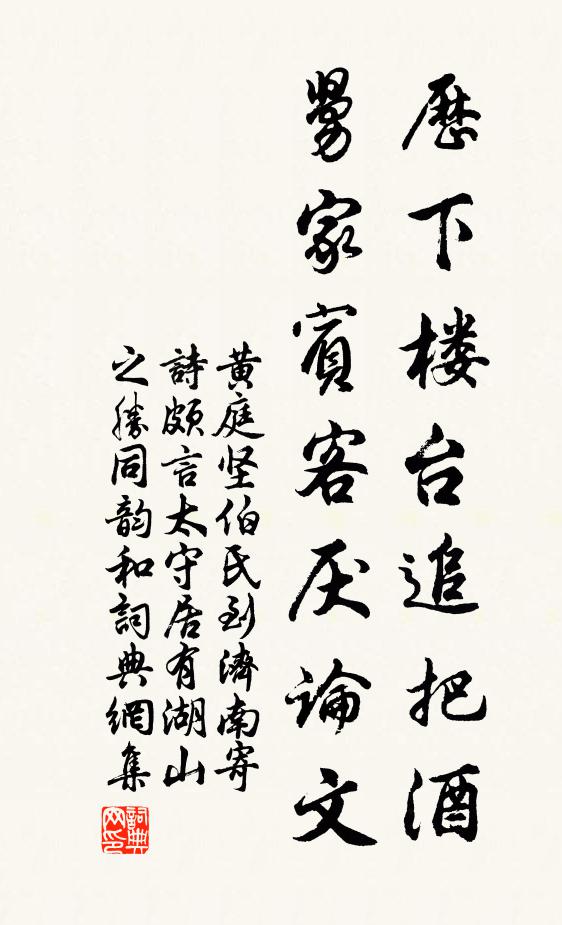 歷下楼台追把酒
舅家賓客厌論文
黄庭坚伯氏到濟南寄
詩頗言太守居有湖山
之勝同韵和詞典網集
詞典网印